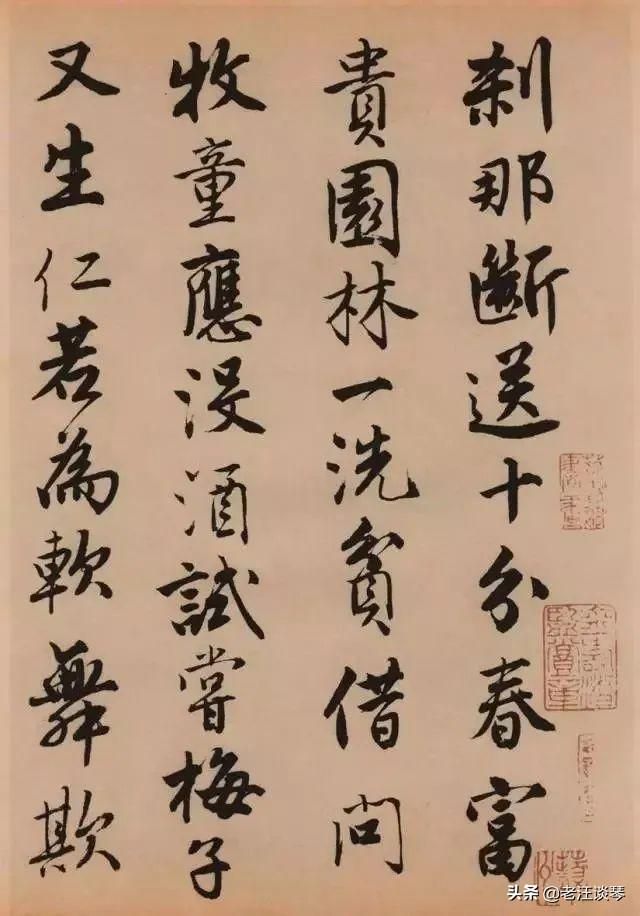 刹那断送十分春富
貴園林一洗貧借問
牧童應沒酒試嘗梅子
又生仁若為軟舞欺
头条 @老汪谈琴